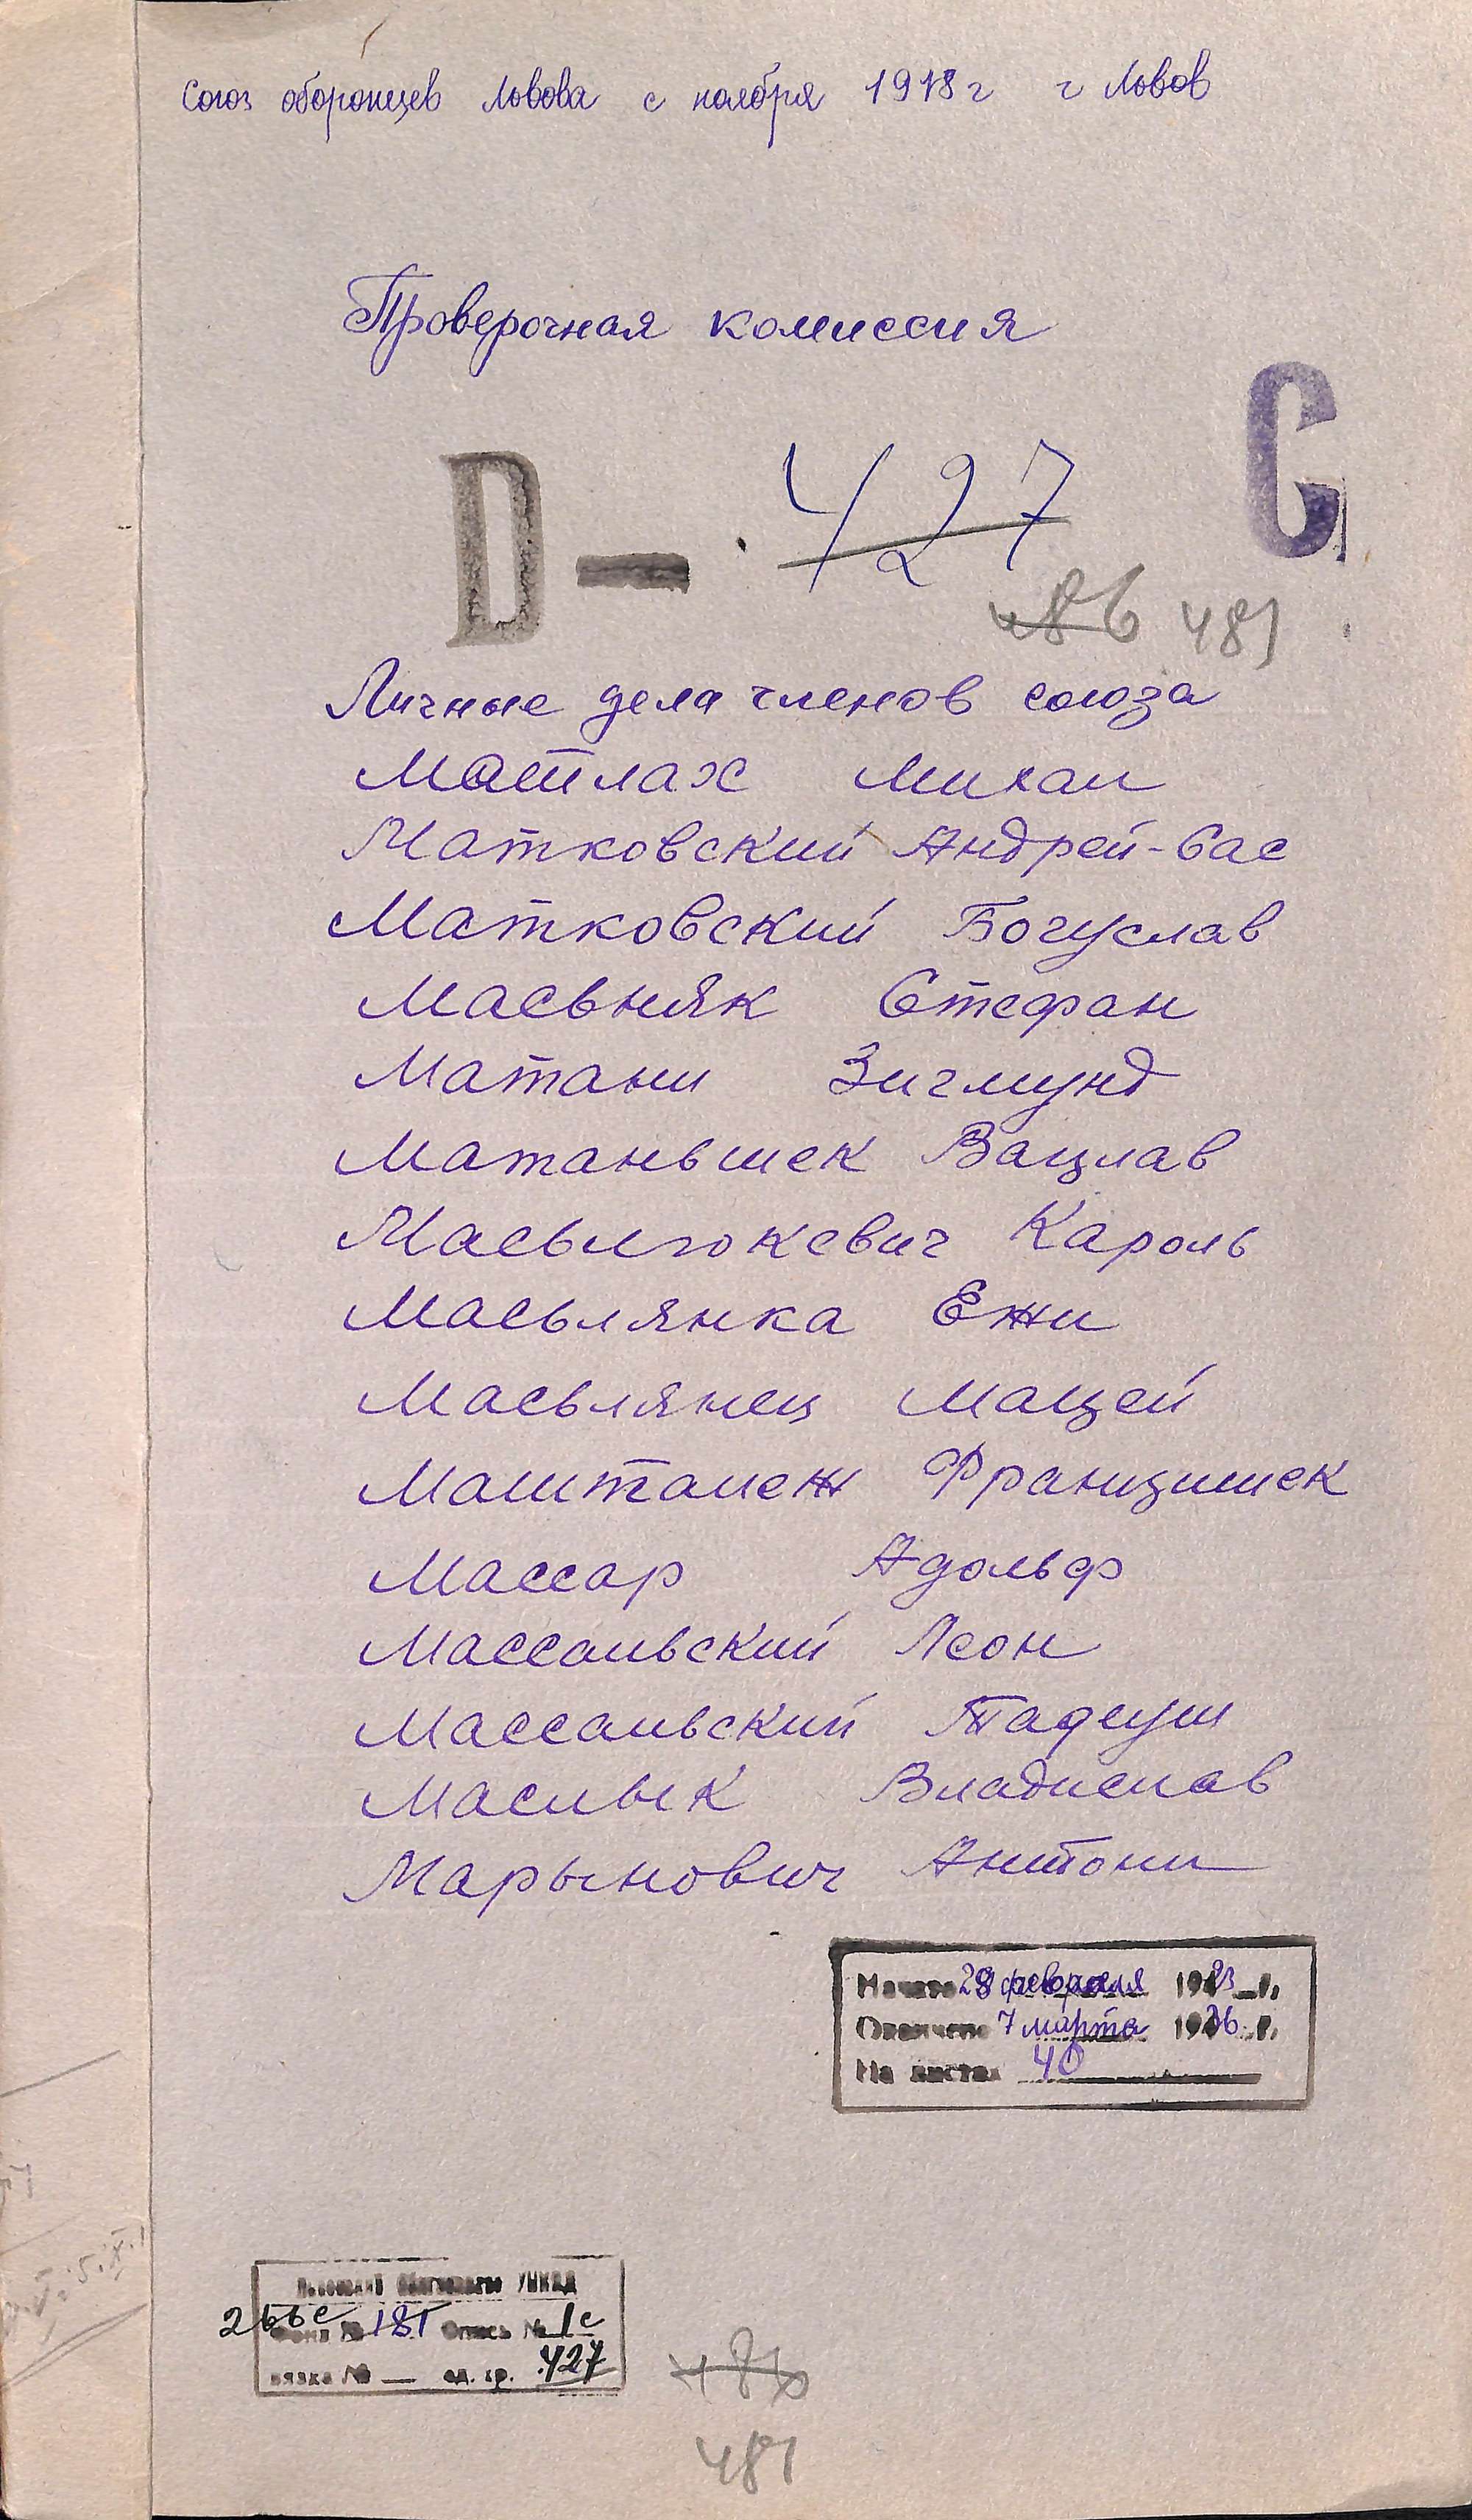 Союз оборонцев Львова с ноября 1918 г г Львов
Проверочная комиссия
C
D — 427
486 481
Личные дела членов союза
Матлах Михал
Матковский Андрей-Вас
Матковский Богуслав
Масьняк Стефан
Матани Зигмунд
Матаньшек Вацлав
Масьлюкевич Кароль
Масьлянка Ежи
Масьлянец Мацей
Машталеж Францишек
Массар Адольф
Массальский Леон
Массальский Тадеуш
Маслык Владислав
Марынович Антони
Начато 28 февраля 1923 г.
Окончено 7 марта 1936 г.
На листах 40
Львовский Облгосархив УНКВД
266с Фонд № 181 Опись № 1с
вязка № — ед. хр. 427
486
481